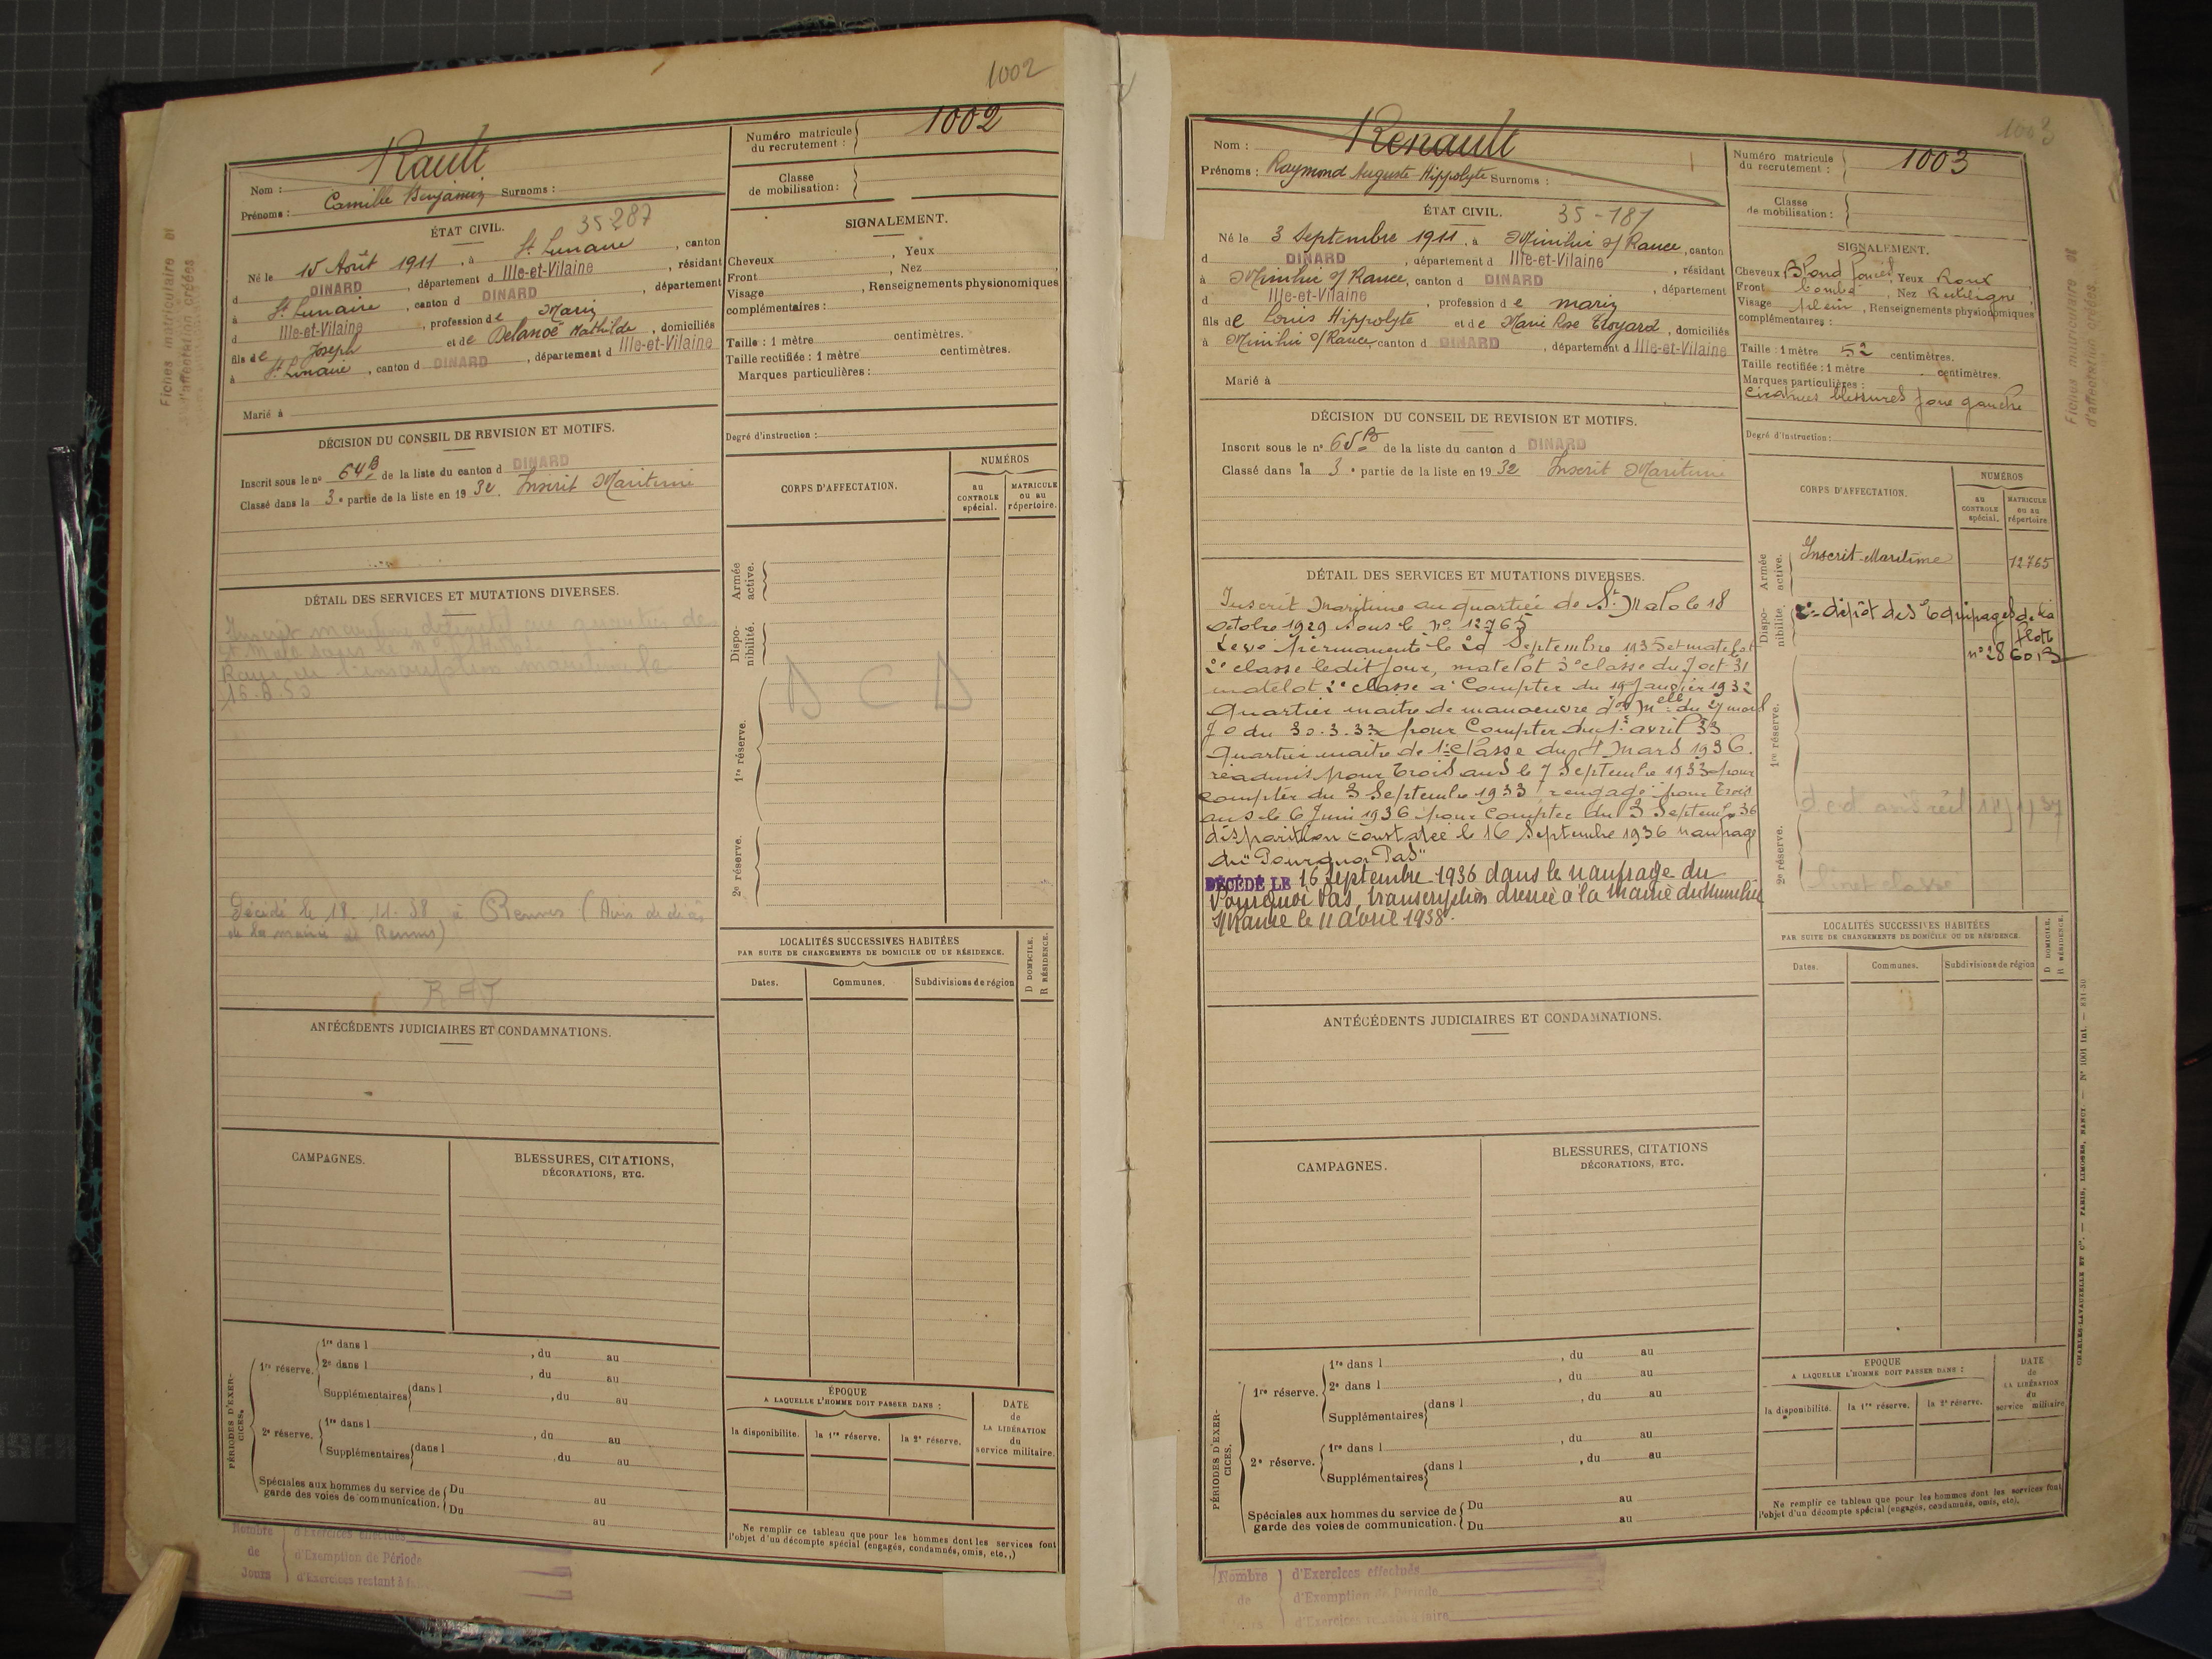 1002
Nom : Rault
Prénoms : Camille Benjamin Surnoms :
Numéro matricule du recrutement : 1002
Classe de mobilisation :
ÉTAT CIVIL. 35-287
Né le 15 Août 1911, à St Lunaire, canton
d DINARD, département d Ille-et-Vilaine, résidant
à St Lunaire, canton d DINARD, département
d Ille-et-Vilaine, profession de Marin
fils de Joseph et de Delanoë Mathilde, domiciliés
à St Lunaire, canton d DINARD, département d Ille-et-Vilaine
Marié à
SIGNALEMENT.
Cheveux , Yeux
Front , Nez
Visage , Renseignements physionomiques
complémentaires :
Taille : 1 mètre centimètres.
Taille rectifiée : 1 mètre centimètres.
Marques particulières :
Degré d'instruction :
DÉCISION DU CONSEIL DE REVISION ET MOTIFS.
Inscrit sous le n° 64 B de la liste du canton d DINARD
Classé dans la 3e partie de la liste en 1932. Inscrit Maritime
CORPS D'AFFECTATION.
NUMÉROS
au CONTROLE spécial.
MATRICULE ou au répertoire.
Armée active.
Disponibilité.
1re réserve.
2e réserve.
D C D
DÉTAIL DES SERVICES ET MUTATIONS DIVERSES.
Inscrit maritime définitif au quartier de
St Malo sous le n°
Rayé de l'inscription maritime le
16.8.50
Décédé le 18.11.58 à Rennes (Avis de décès
de la mairie de Rennes)
R A J
ANTÉCÉDENTS JUDICIAIRES ET CONDAMNATIONS.
LOCALITÉS SUCCESSIVES HABITÉES
PAR SUITE DE CHANGEMENTS DE DOMICILE OU DE RÉSIDENCE.
D DOMICILE.
R RÉSIDENCE.
Dates. Communes. Subdivisions de région
CAMPAGNES.
BLESSURES, CITATIONS,
DÉCORATIONS, ETC.
PÉRIODES D'EXERCICES.
1re réserve. 1re dans l , du au
2e dans l , du au
Supplémentaires dans l , du au
2e réserve. 1re dans l , du au
Supplémentaires dans l , du au
Spéciales aux hommes du service de Du au
garde des voies de communication. Du au
ÉPOQUE
A LAQUELLE L'HOMME DOIT PASSER DANS :
DATE de LA LIBÉRATION du service militaire.
la disponibilité. la 1re réserve. la 2e réserve.
Ne remplir ce tableau que pour les hommes dont les services font
l'objet d'un décompte spécial (engagés, condamnés, omis, etc.,)
Nombre de Jours
d'Exercices effectués
d'Exemption de Période
d'Exercices restant à
Fiches matriculaire et
d'affectation créées
1003
Nom : Renault
Prénoms : Raymond Auguste Hippolyte Surnoms :
Numéro matricule du recrutement : 1003
Classe de mobilisation :
ÉTAT CIVIL. 35-181
Né le 3 Septembre 1911, à Minihic s/ Rance, canton
d DINARD, département d Ille-et-Vilaine, résidant
à Minihic s/ Rance, canton d DINARD, département
d Ille-et-Vilaine, profession de marin
fils de Louis Hippolyte et de Marie Rose Troyard, domiciliés
à Minihic s/ Rance, canton d DINARD, département d Ille-et-Vilaine
Marié à
SIGNALEMENT.
Cheveux Blond foncé, Yeux Roux
Front bombé, Nez Rectiligne,
Visage plein, Renseignements physionomiques
complémentaires :
Taille : 1 mètre 52 centimètres.
Taille rectifiée : 1 mètre centimètres.
Marques particulières :
Cicatrices blessures joue gauche
Degré d'instruction :
DÉCISION DU CONSEIL DE REVISION ET MOTIFS.
Inscrit sous le n° 65 B de la liste du canton d DINARD
Classé dans la 3e partie de la liste en 1932 Inscrit Maritime
CORPS D'AFFECTATION.
NUMÉROS
au CONTROLE spécial.
MATRICULE ou au répertoire
Armée active. Inscrit Maritime 12765
Disponibilité. 2e dépôt des Equipages de la
flotte
n° 28601 B
1re réserve.
2e réserve.
livret classé
DÉTAIL DES SERVICES ET MUTATIONS DIVERSES.
Inscrit maritime au quartier de St Malo le 18
octobre 1929 sous le n° 12765
Levé permanente le 20 Septembre 1935 et matelot
2e classe ledit jour, matelot 3e classe du 7 oct 31
matelot 2e classe à compter du 19 Janvier 1932
Quartier maitre de manoeuvre don Melle du 27 mars
J O du 30.3.33 pour Compter du 1er avril 33
Quartier maitre de 1e Classe du 4 mars 1936.
réadmis pour trois ans le 7 Septembre 1933 pour
compter du 3 Septembre 1933 rengagé pour trois
ans le 6 Juin 1936 pour compter du 3 Septembre 36
disparition constatée le 16 Septembre 1936 naufrage
du "Pourquoi Pas"
DÉCÉDÉ LE 16 Septembre 1936 dans le naufrage du
Pourquoi Pas, transcription dressée à la Mairie du Minihic
s/Rance le 11 avril 1938.
ANTÉCÉDENTS JUDICIAIRES ET CONDAMNATIONS.
LOCALITÉS SUCCESSIVES HABITÉES
PAR SUITE DE CHANGEMENTS DE DOMICILE OU DE RÉSIDENCE.
D DOMICILE.
R RÉSIDENCE.
Dates. Communes. Subdivisions de région
CAMPAGNES.
BLESSURES, CITATIONS
DÉCORATIONS, ETC.
PÉRIODES D'EXERCICES.
1re réserve. 1re dans l , du au
2e dans l , du au
Supplémentaires dans l , du au
2e réserve. 1re dans l , du au
Supplémentaires dans l , du au
Spéciales aux hommes du service de Du au
garde des voies de communication. Du au
ÉPOQUE
A LAQUELLE L'HOMME DOIT PASSER DANS :
DATE de LA LIBÉRATION du service militaire
la disponibilité. la 1re réserve. la 2e réserve.
Ne remplir ce tableau que pour les hommes dont les services font
l'objet d'un décompte spécial (engagés, condamnés, omis, etc).
Nombre de Jours
d'Exercices effectués
d'Exemption de Période
d'Exercices
CHARLES-LAVAUZELLE ET Cie. — PARIS, LIMOGES, NANCY. — N° 1001 int. — 831-30
Fiches matriculaire et
d'affectation créées